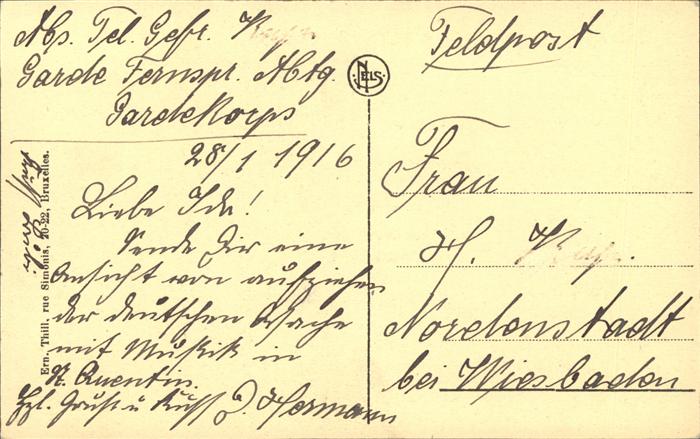 Abs. Tel. Gefr.
Garde Fernspr. Abtg.
Gardekorps
28/1 1916
Liebe Ida!
Sende Dir eine
Ansicht von aufziehen
der deutschen Wache
mit Musik in
St. Quentin.
Hzl. Gruß u Kuß D. Hermann
Ern. Thill, rue Simonis, 20-22, Bruxelles.
NELS
Feldpost
Frau
H.
Nordenstadt
bei Wiesbaden